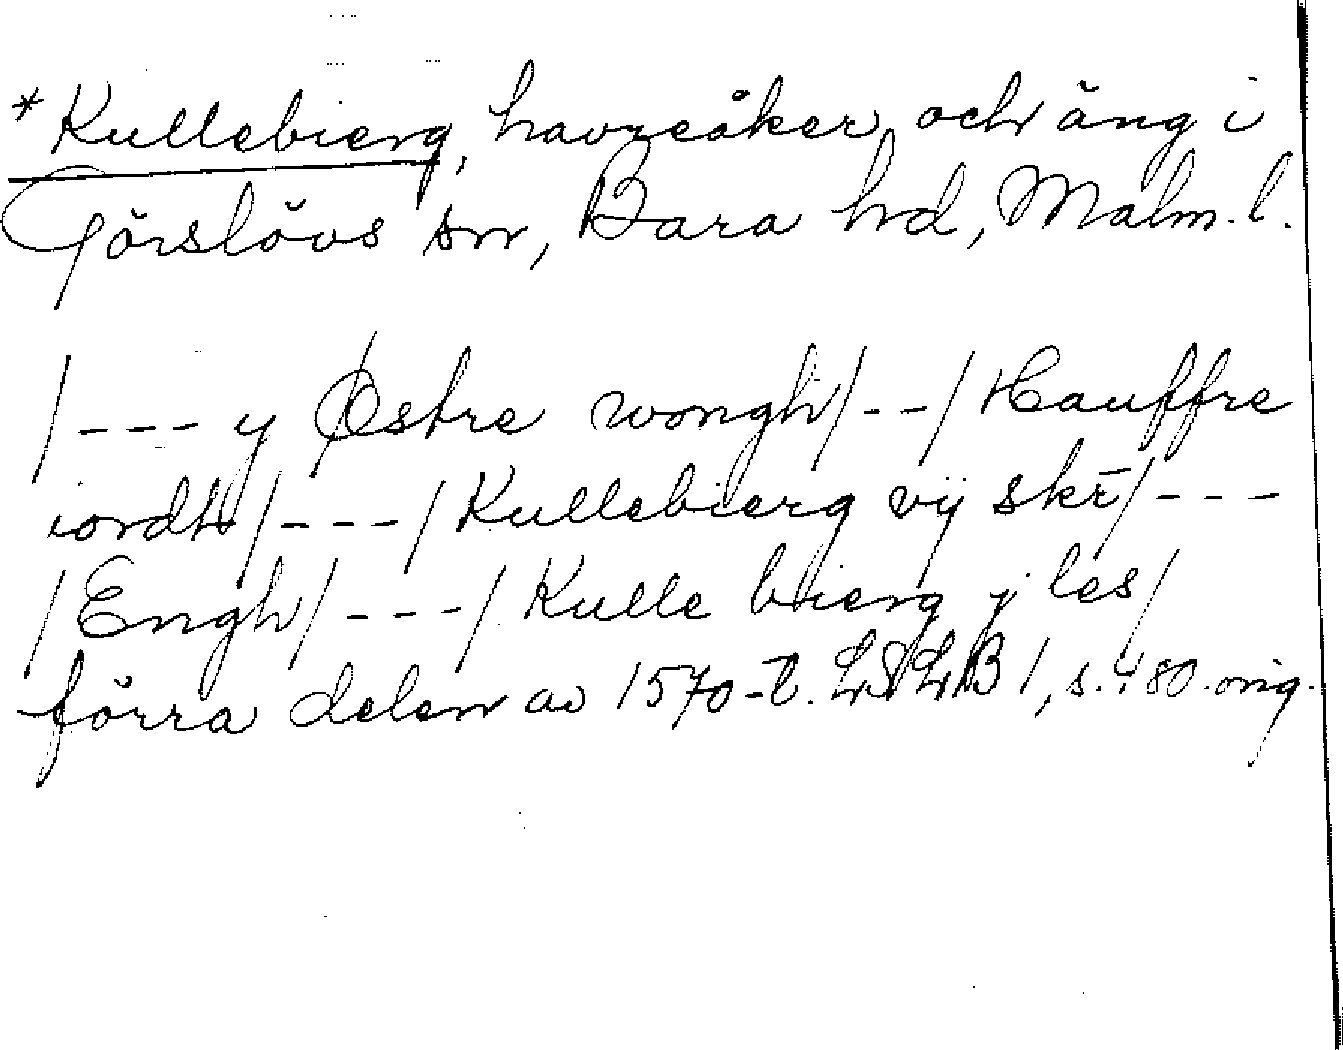 *Kullebierg, havreåker och äng i
Görslövs sn, Bara hd, Malm. l.
/---y Østre wongh/--/Hauffre
iordh/---/Kullebierg vij skr̄/---
/Engh/---/Kulle bierg y les/
förra delen av 1570-t. LSLB 1, s. 480. orig.